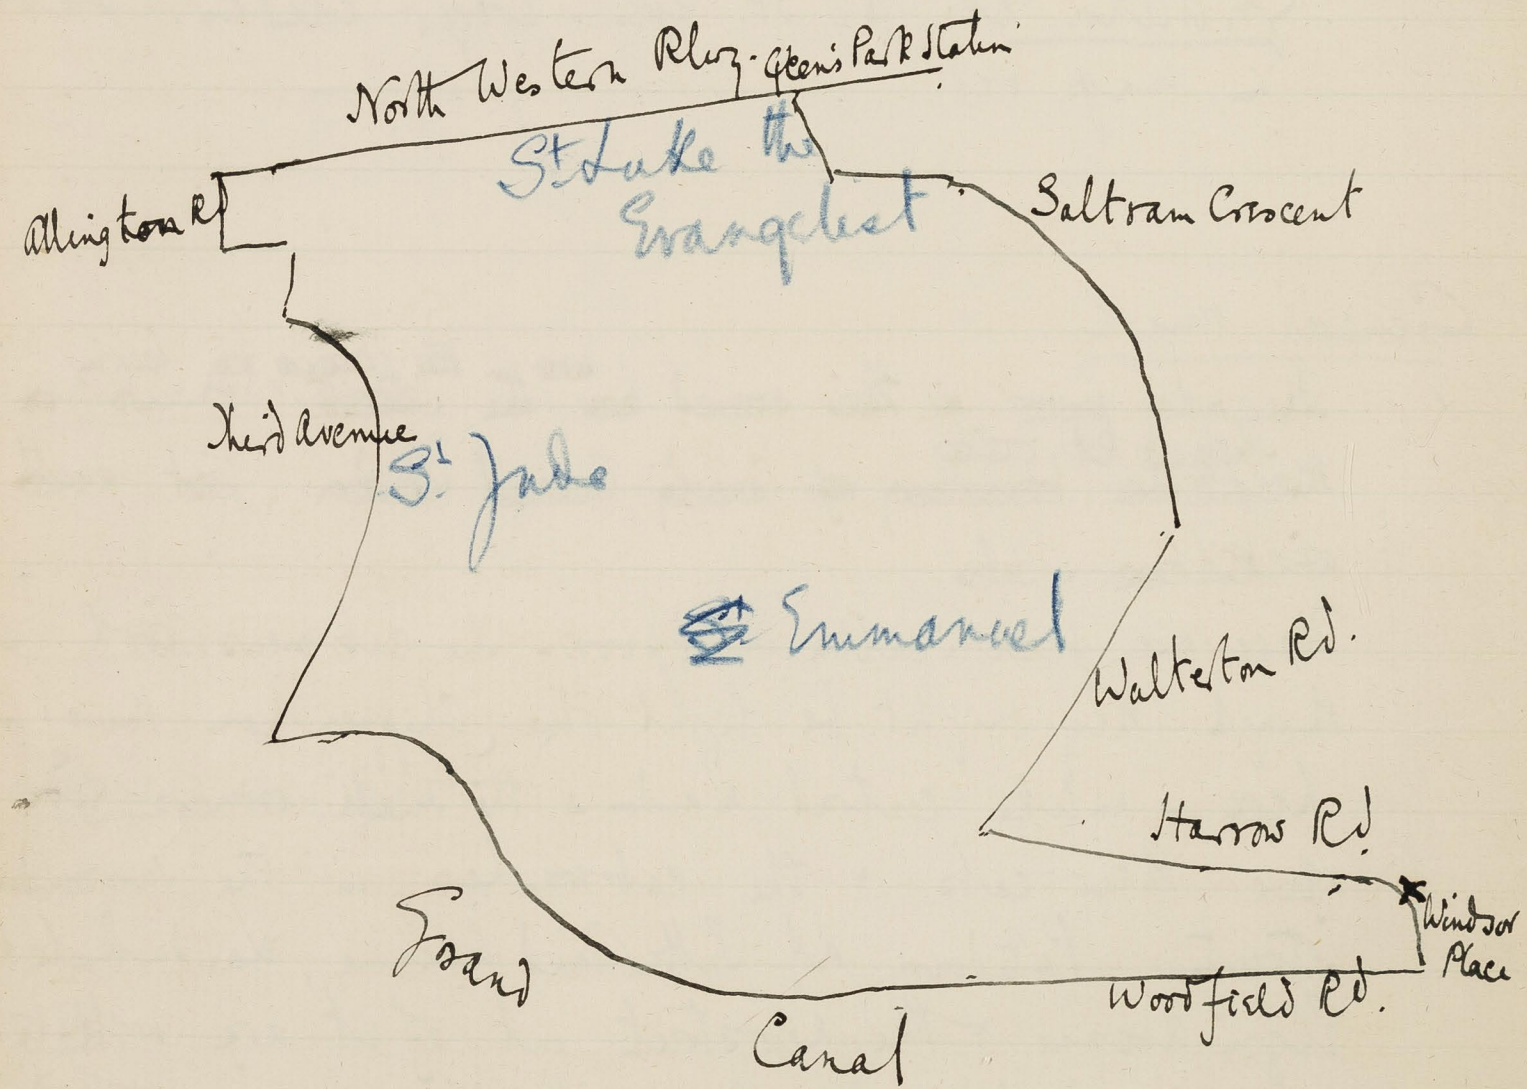 North Western Rlwy. Qeen's Park Station
St. Luke the
Evangelist
Allington Rd
Saltram Crescent
Third Avenue
St. Jude
St Emmanuel
Walterton Rd.
Harrow Rd.
Windsor
Place
Woodfield Rd.
Grand
Canal